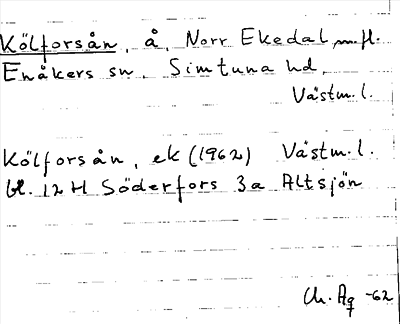 Kölforsån, å, Norr Ekedal m.fl.
Enåkers sn, Simtuna hd,
Västm.l.
Kölforsån, ek (1962) Västm.l.
bl. 12 H Söderfors 3a Altsjön
Ch. Aq -62